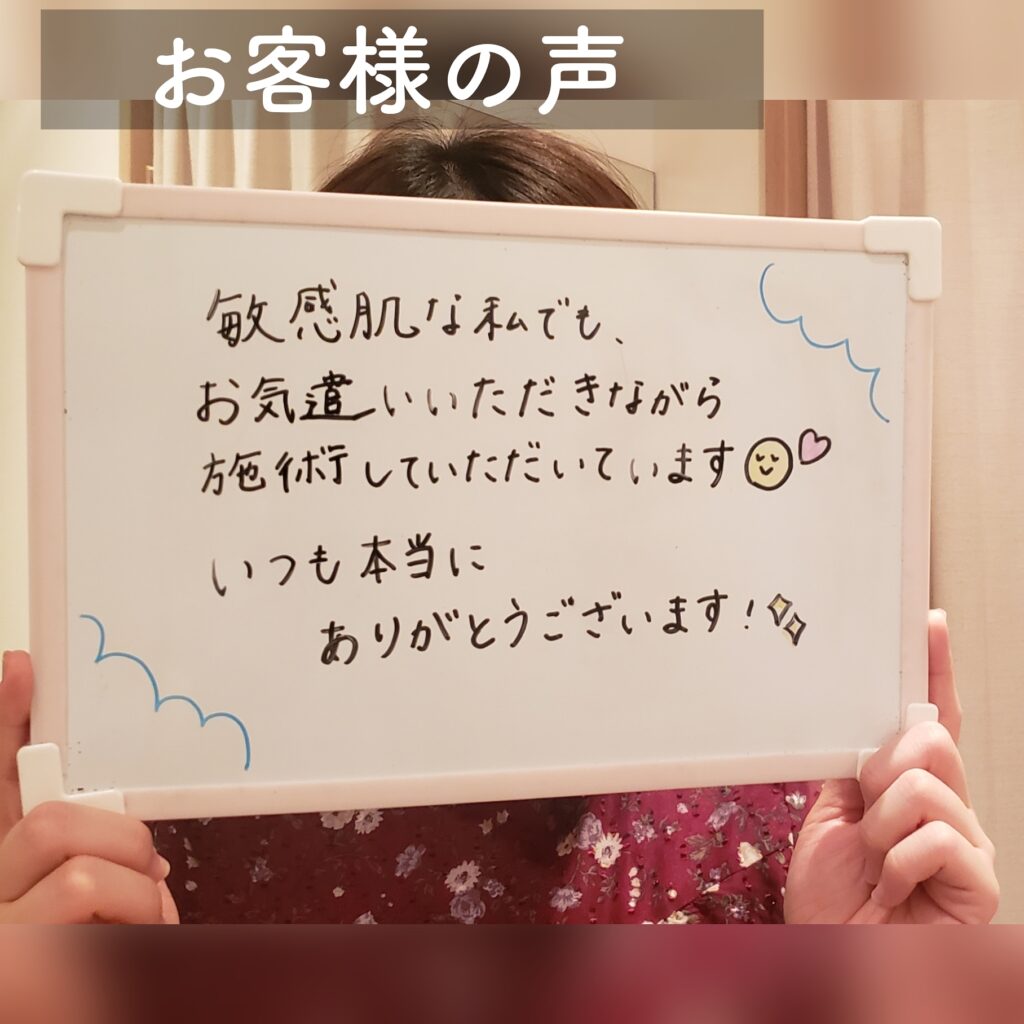 お客様の声
敏感肌な私でも、
お気遣いいただきながら
施術していただいています
いつも本当に
ありがとうございます！